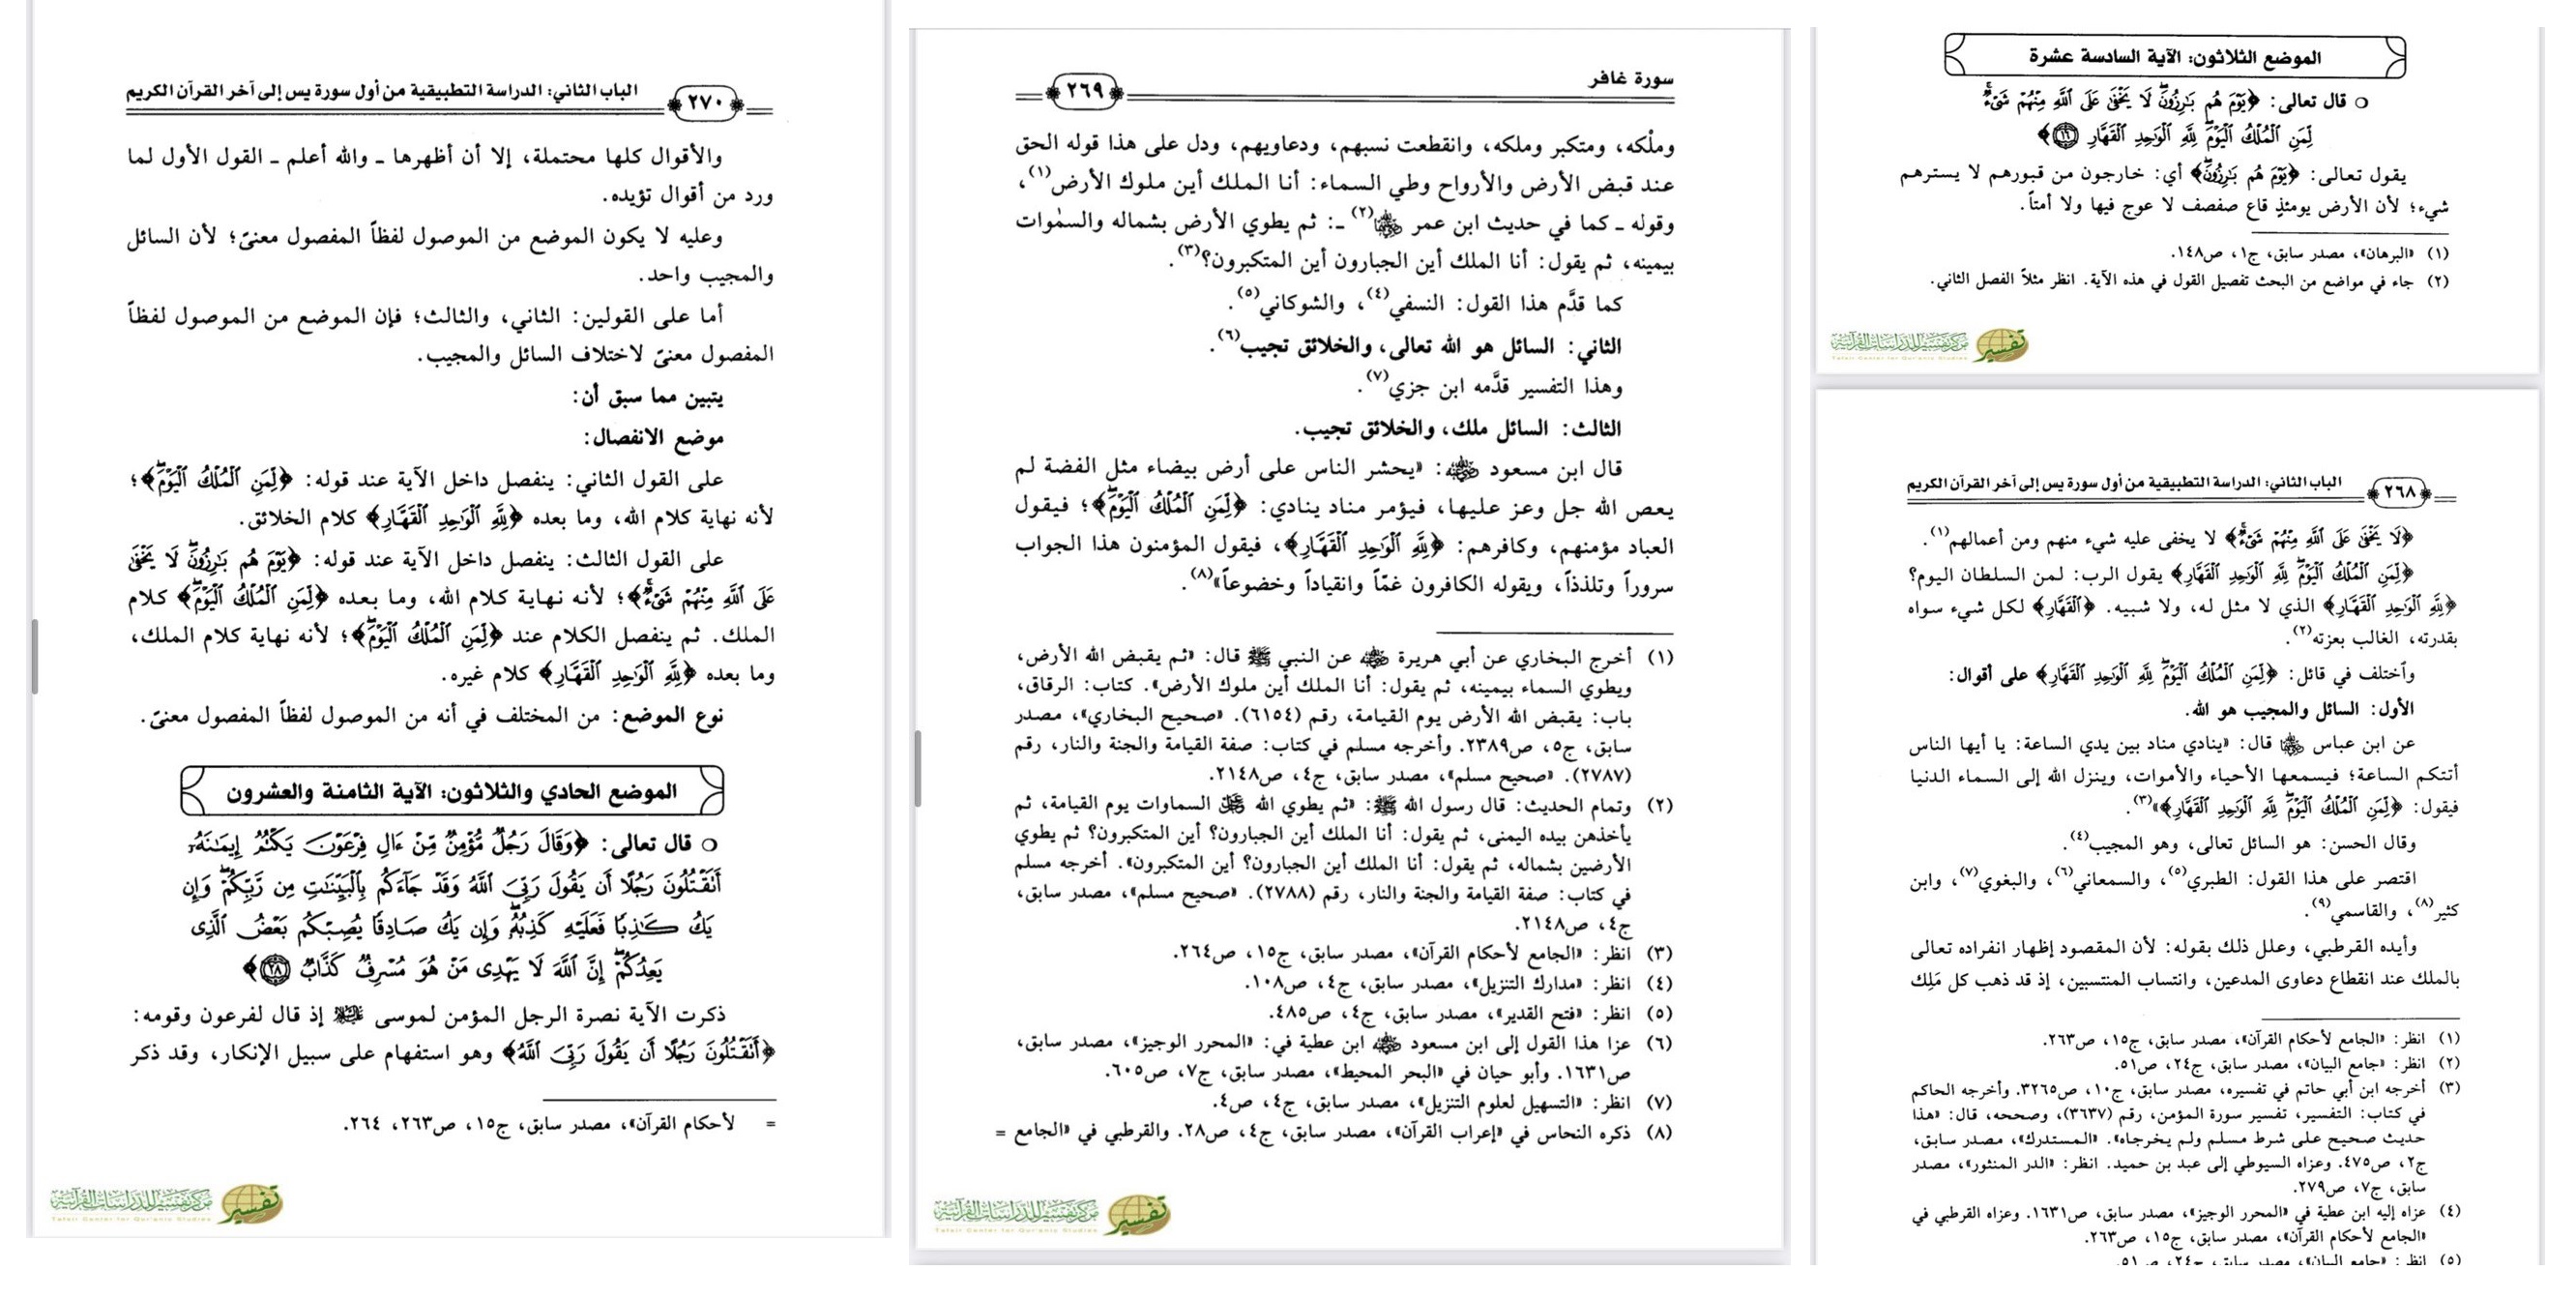 الموضع الثلاثون: الآية السادسة عشرة
○ قال تعالى: ﴿يَوْمَ هُم بَٰرِزُونَۖ لَا يَخْفَىٰ عَلَى ٱللَّهِ مِنْهُمْ شَىْءٌۚ
لِّمَنِ ٱلْمُلْكُ ٱلْيَوْمَۖ لِلَّهِ ٱلْوَٰحِدِ ٱلْقَهَّارِ ١٦﴾
يقول تعالى: ﴿يَوْمَ هُم بَٰرِزُونَۖ﴾ أي: خارجون من قبورهم لا يسترهم
شيء؛ لأن الأرض يومئذٍ قاع صفصف لا عوج فيها ولا أمتاً.
(١) «البرهان»، مصدر سابق، ج١، ص١٤٨.
(٢) جاء في مواضع من البحث تفصيل القول في هذه الآية. انظر مثلاً الفصل الثاني.
مركز تفسير للدراسات القرآنية
Tafsir Center for Qur'anic Studies
تفسير
٢٦٨ الباب الثاني: الدراسة التطبيقية من أول سورة يس إلى آخر القرآن الكريم
﴿لَا يَخْفَىٰ عَلَى ٱللَّهِ مِنْهُمْ شَىْءٌۚ﴾ لا يخفى عليه شيء منهم ومن أعمالهم(١).
﴿لِّمَنِ ٱلْمُلْكُ ٱلْيَوْمَۖ لِلَّهِ ٱلْوَٰحِدِ ٱلْقَهَّارِ﴾ يقول الرب: لمن السلطان اليوم؟
﴿لِلَّهِ ٱلْوَٰحِدِ ٱلْقَهَّارِ﴾ الذي لا مثل له، ولا شبيه. ﴿ٱلْقَهَّارِ﴾ لكل شيء سواه
بقدرته، الغالب بعزته(٢).
وٱختلف في قائل: ﴿لِّمَنِ ٱلْمُلْكُ ٱلْيَوْمَۖ لِلَّهِ ٱلْوَٰحِدِ ٱلْقَهَّارِ﴾ على أقوال:
الأول: السائل والمجيب هو الله.
عن ابن عباس ﵁ قال: «ينادي مناد بين يدي الساعة: يا أيها الناس
أتتكم الساعة؛ فيسمعها الأحياء والأموات، وينزل الله إلى السماء الدنيا
فيقول: ﴿لِّمَنِ ٱلْمُلْكُ ٱلْيَوْمَۖ لِلَّهِ ٱلْوَٰحِدِ ٱلْقَهَّارِ﴾»(٣).
وقال الحسن: هو السائل تعالى، وهو المجيب(٤).
اقتصر على هذا القول: الطبري(٥)، والسمعاني(٦)، والبغوي(٧)، وابن
كثير(٨)، والقاسمي(٩).
وأيده القرطبي، وعلل ذلك بقوله: لأن المقصود إظهار انفراده تعالى
بالملك عند انقطاع دعاوى المدعين، وانتساب المنتسبين، إذ قد ذهب كل مَلِك
(١) انظر: «الجامع لأحكام القرآن»، مصدر سابق، ج١٥، ص٢٦٣.
(٢) انظر: «جامع البيان»، مصدر سابق، ج٢٤، ص٥١.
(٣) أخرجه ابن أبي حاتم في تفسيره، مصدر سابق، ج١٠، ص٣٢٦٥. وأخرجه الحاكم
في كتاب: التفسير، تفسير سورة المؤمن، رقم (٣٦٣٧)، وصححه، قال: «هذا
حديث صحيح على شرط مسلم ولم يخرجاه». «المستدرك»، مصدر سابق،
ج٢، ص٤٧٥. وعزاه السيوطي إلى عبد بن حميد. انظر: «الدر المنثور»، مصدر
سابق، ج٧، ص٢٧٩.
(٤) عزاه إليه ابن عطية في «المحرر الوجيز»، مصدر سابق، ص١٦٣١. وعزاه القرطبي في
«الجامع لأحكام القرآن»، مصدر سابق، ج١٥، ص٢٦٣.
(٥) انظر: «جامع البيان»، مصدر سابق، ج٢٤، ص٥١.
سورة غافر ٢٦٩
وملْكه، ومتكبر وملكه، وانقطعت نسبهم، ودعاويهم، ودل على هذا قوله الحق
عند قبض الأرض والأرواح وطي السماء: أنا الملك أين ملوك الأرض(١)،
وقوله ـ كما في حديث ابن عمر ﵁(٢) ـ: ثم يطوي الأرض بشماله والسمٰوات
بيمينه، ثم يقول: أنا الملك أين الجبارون أين المتكبرون؟(٣).
كما قدَّم هذا القول: النسفي(٤)، والشوكاني(٥).
الثاني: السائل هو الله تعالى، والخلائق تجيب(٦).
وهذا التفسير قدَّمه ابن جزي(٧).
الثالث: السائل ملك، والخلائق تجيب.
قال ابن مسعود ﵁: «يحشر الناس على أرض بيضاء مثل الفضة لم
يعص الله جل وعز عليها، فيؤمر مناد ينادي: ﴿لِّمَنِ ٱلْمُلْكُ ٱلْيَوْمَۖ﴾؛ فيقول
العباد مؤمنهم، وكافرهم: ﴿لِلَّهِ ٱلْوَٰحِدِ ٱلْقَهَّارِ﴾، فيقول المؤمنون هذا الجواب
سروراً وتلذذاً، ويقوله الكافرون غمّاً وانقياداً وخضوعاً»(٨).
(١) أخرج البخاري عن أبي هريرة ﵁ عن النبي ﷺ قال: «ثم يقبض الله الأرض،
ويطوي السماء بيمينه، ثم يقول: أنا الملك أين ملوك الأرض». كتاب: الرقاق،
باب: يقبض الله الأرض يوم القيامة، رقم (٦١٥٤). «صحيح البخاري»، مصدر
سابق، ج٥، ص٢٣٨٩. وأخرجه مسلم في كتاب: صفة القيامة والجنة والنار، رقم
(٢٧٨٧). «صحيح مسلم»، مصدر سابق، ج٤، ص٢١٤٨.
(٢) وتمام الحديث: قال رسول الله ﷺ: «ثم يطوي الله ﷻ السماوات يوم القيامة، ثم
يأخذهن بيده اليمنى، ثم يقول: أنا الملك أين الجبارون؟ أين المتكبرون؟ ثم يطوي
الأرضين بشماله، ثم يقول: أنا الملك أين الجبارون؟ أين المتكبرون». أخرجه مسلم
في كتاب: صفة القيامة والجنة والنار، رقم (٢٧٨٨). «صحيح مسلم»، مصدر سابق،
ج٤، ص٢١٤٨.
(٣) انظر: «الجامع لأحكام القرآن»، مصدر سابق، ج١٥، ص٢٦٤.
(٤) انظر: «مدارك التنزيل»، مصدر سابق، ج٤، ص١٠٨.
(٥) انظر: «فتح القدير»، مصدر سابق، ج٤، ص٤٨٥.
(٦) عزا هذا القول إلى ابن مسعود ﵁ ابن عطية في: «المحرر الوجيز»، مصدر سابق،
ص١٦٣١. وأبو حيان في «البحر المحيط»، مصدر سابق، ج٧، ص٦٠٥.
(٧) انظر: «التسهيل لعلوم التنزيل»، مصدر سابق، ج٤، ص٤.
(٨) ذكره النحاس في «إعراب القرآن»، مصدر سابق، ج٤، ص٢٨. والقرطبي في «الجامع =
مركز تفسير للدراسات القرآنية
Tafsir Center for Qur'anic Studies
تفسير
٢٧٠ الباب الثاني: الدراسة التطبيقية من أول سورة يس إلى آخر القرآن الكريم
والأقوال كلها محتملة، إلا أن أظهرها ـ والله أعلم ـ القول الأول لما
ورد من أقوال تؤيده.
وعليه لا يكون الموضع من الموصول لفظاً المفصول معنىً؛ لأن السائل
والمجيب واحد.
أما على القولين: الثاني، والثالث؛ فإن الموضع من الموصول لفظاً
المفصول معنىً لاختلاف السائل والمجيب.
يتبين مما سبق أن:
موضع الانفصال:
على القول الثاني: ينفصل داخل الآية عند قوله: ﴿لِّمَنِ ٱلْمُلْكُ ٱلْيَوْمَۖ﴾؛
لأنه نهاية كلام الله، وما بعده ﴿لِلَّهِ ٱلْوَٰحِدِ ٱلْقَهَّارِ﴾ كلام الخلائق.
على القول الثالث: ينفصل داخل الآية عند قوله: ﴿يَوْمَ هُم بَٰرِزُونَۖ لَا يَخْفَىٰ
عَلَى ٱللَّهِ مِنْهُمْ شَىْءٌۚ﴾؛ لأنه نهاية كلام الله، وما بعده ﴿لِّمَنِ ٱلْمُلْكُ ٱلْيَوْمَۖ﴾ كلام
الملك. ثم ينفصل الكلام عند ﴿لِّمَنِ ٱلْمُلْكُ ٱلْيَوْمَۖ﴾؛ لأنه نهاية كلام الملك،
وما بعده ﴿لِلَّهِ ٱلْوَٰحِدِ ٱلْقَهَّارِ﴾ كلام غيره.
نوع الموضع: من المختلف في أنه من الموصول لفظاً المفصول معنىً.
الموضع الحادي والثلاثون: الآية الثامنة والعشرون
○ قال تعالى: ﴿وَقَالَ رَجُلٌ مُّؤْمِنٌ مِّنْ ءَالِ فِرْعَوْنَ يَكْتُمُ إِيمَٰنَهُۥٓ
أَتَقْتُلُونَ رَجُلًا أَن يَقُولَ رَبِّىَ ٱللَّهُ وَقَدْ جَآءَكُم بِٱلْبَيِّنَٰتِ مِن رَّبِّكُمْۖ وَإِن
يَكُ كَٰذِبًا فَعَلَيْهِ كَذِبُهُۥۖ وَإِن يَكُ صَادِقًا يُصِبْكُم بَعْضُ ٱلَّذِى
يَعِدُكُمْۖ إِنَّ ٱللَّهَ لَا يَهْدِى مَنْ هُوَ مُسْرِفٌ كَذَّابٌ ٢٨﴾
ذكرت الآية نصرة الرجل المؤمن لموسى ﵇ إذ قال لفرعون وقومه:
﴿أَتَقْتُلُونَ رَجُلًا أَن يَقُولَ رَبِّىَ ٱللَّهُ﴾ وهو استفهام على سبيل الإنكار، وقد ذكر
= لأحكام القرآن»، مصدر سابق، ج١٥، ص٢٦٣، ٢٦٤.
مركز تفسير للدراسات القرآنية
Tafsir Center for Qur'anic Studies
تفسير